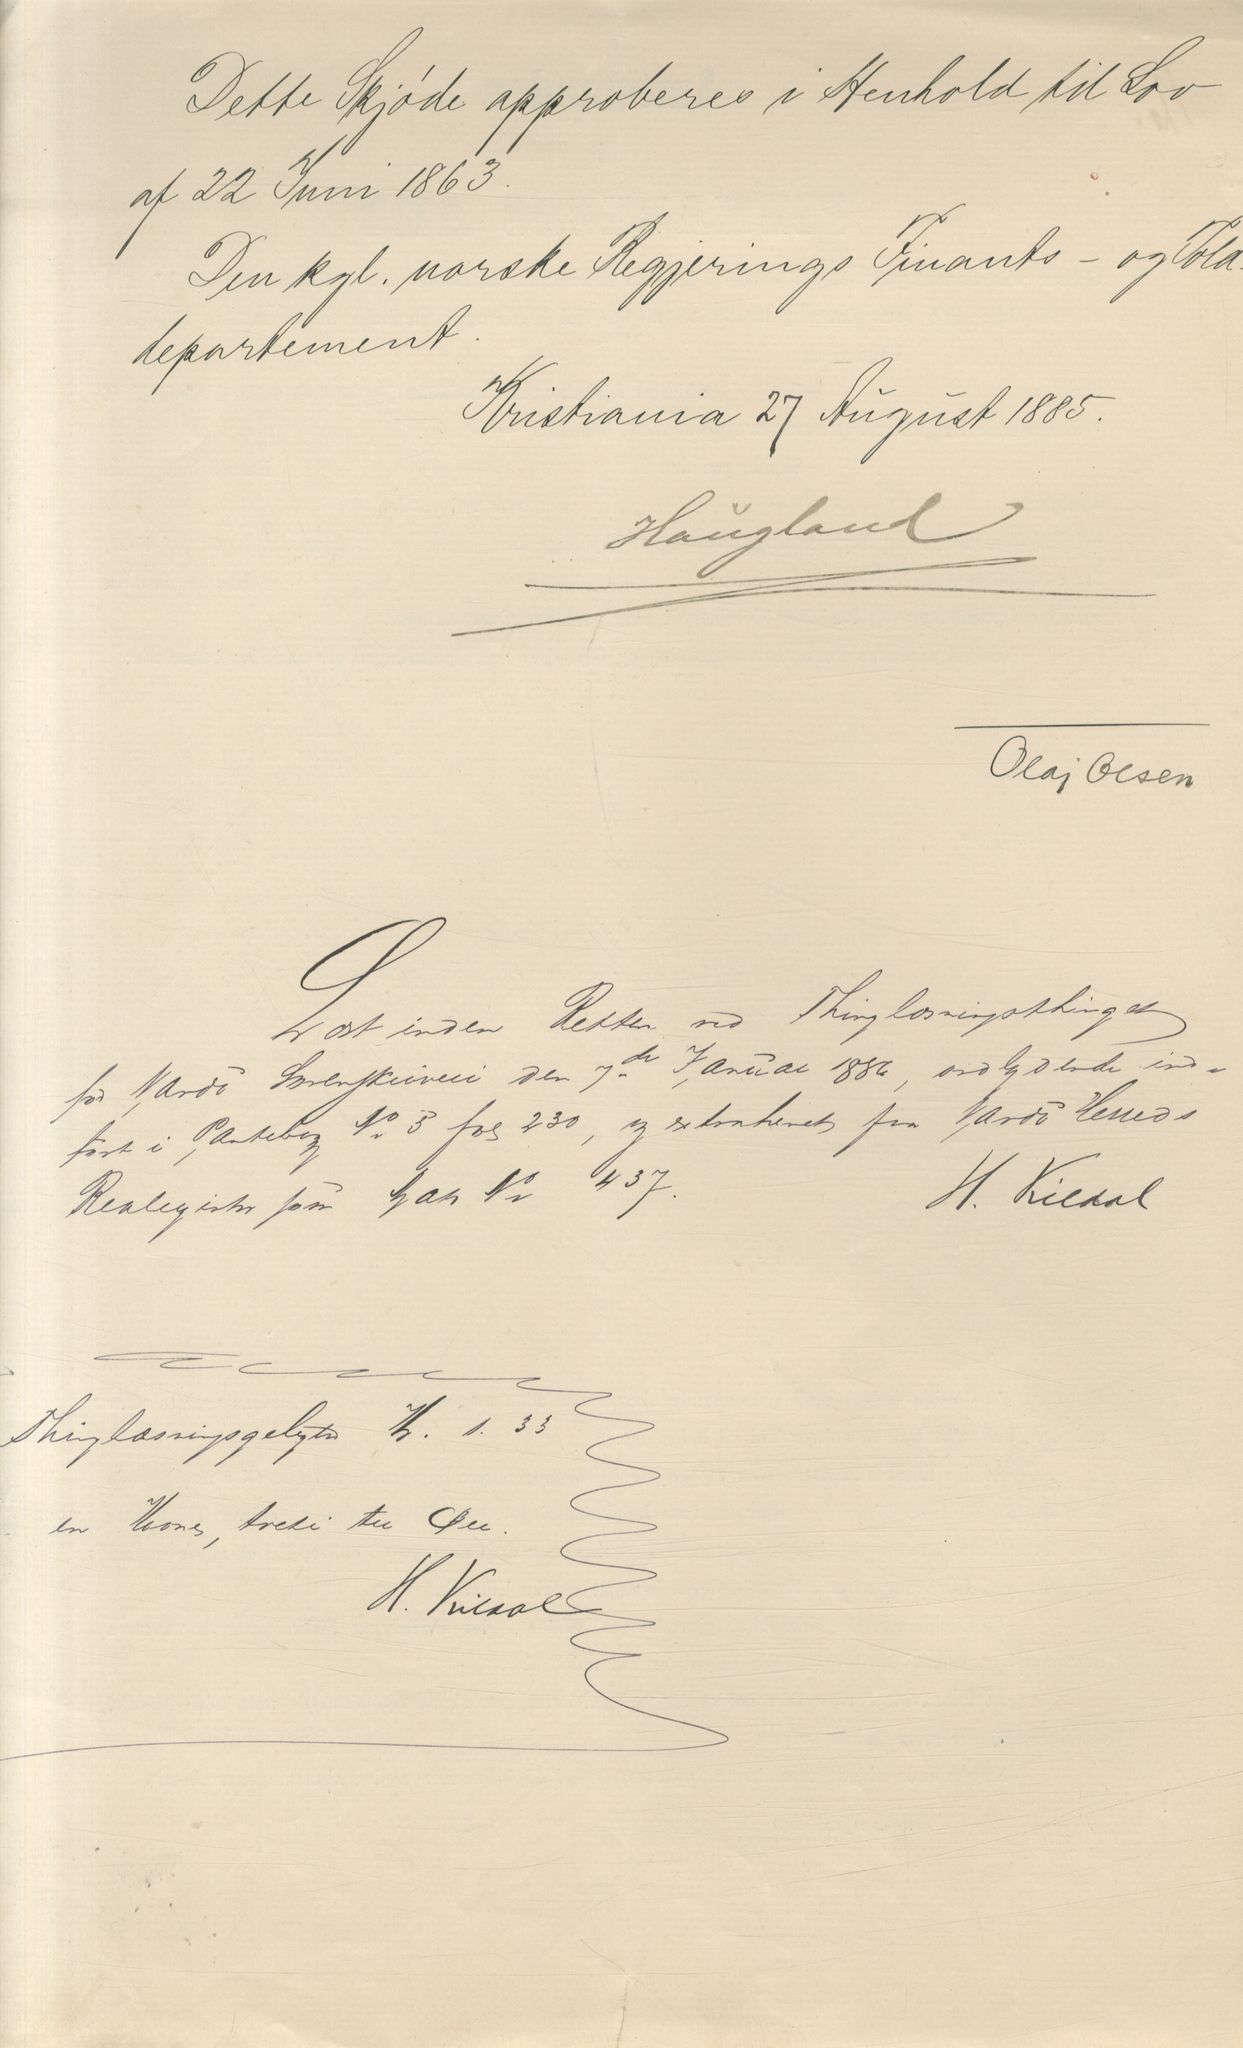 Dette Skjöde approberes i Henhold til Lov
af 22 Juni 1863.
Den kgl. norske Regjerings Finants- og Told-
departement.
Kristiania 27 August 1885.
Haugland
Olaj Olsen
Læst inden Retten ved Thinglæsningsthinget
for Vardö Sorenskriveri den 7de Januar 1886, ordlydende ind-
fört i Pantebog No 3 fol 230, og extraheret fra Vardö Herreds
Realregister som No 437.
H. Kildal
Thinglæsningsgebyr Kr. 1. 33
en Krone, treti tre Øre.
H. Kildal